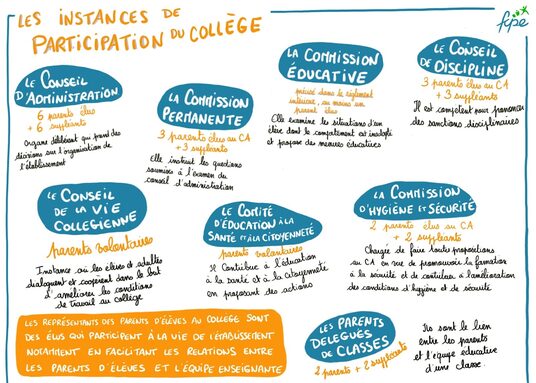 LES INSTANCES DE
PARTICIPATION DU COLLÈGE
fcpe
LE CONSEIL
D'ADMINISTRATION
6 parents élus
+ 6 suppléants
Organe délibérant qui prend des
décisions sur l'organisation de
l'établissement
LA COMMISSION
PERMANENTE
3 parents élus au CA
+ 3 suppléants
Elle instruit les questions
soumises à l'examen du
conseil d'administration
LA COMMISSION
ÉDUCATIVE
précisé dans le règlement
intérieur, au moins un
parent élu
Elle examine les situations d'un
élève dont le comportement est inadapté
et propose des mesures éducatives
LE CONSEIL
DE DISCIPLINE
3 parents élus au CA
+ 3 suppléants
Il est compétent pour prononcer
des sanctions disciplinaires
LE CONSEIL
DE LA VIE
COLLEGIENNE
parents volontaires
Instance où les élèves et adultes
dialoguent et coopèrent dans le but
d'améliorer les conditions
de travail au collège
LE COMITÉ
D'ÉDUCATION À LA
SANTÉ ET À LA CITOYENNETÉ
parents volontaires
Il contribue à l'éducation
à la santé et à la citoyenneté
en proposant des actions
LA COMMISSION
D'HYGIÈNE ET SÉCURITÉ
2 parents élus au CA
+ 2 suppléants
Chargée de faire toutes propositions
au CA en vue de promouvoir la formation
à la sécurité et de contribuer à l'amélioration
des conditions d'hygiène et de sécurité
LES REPRÉSENTANTS DES PARENTS D'ÉLÈVES AU COLLEGE SONT
DES ÉLUS QUI PARTICIPENT À LA VIE DE L'ÉTABLISSEMENT
NOTAMMENT EN FACILITANT LES RELATIONS ENTRE
LES PARENTS D'ÉLÈVES ET L'ÉQUIPE ENSEIGNANTE
LES PARENTS
DÉLÉGUÉS
DE CLASSES
2 parents + 2 suppléants
Ils sont le lien
entre les parents
et l'équipe éducative
d'une classe.